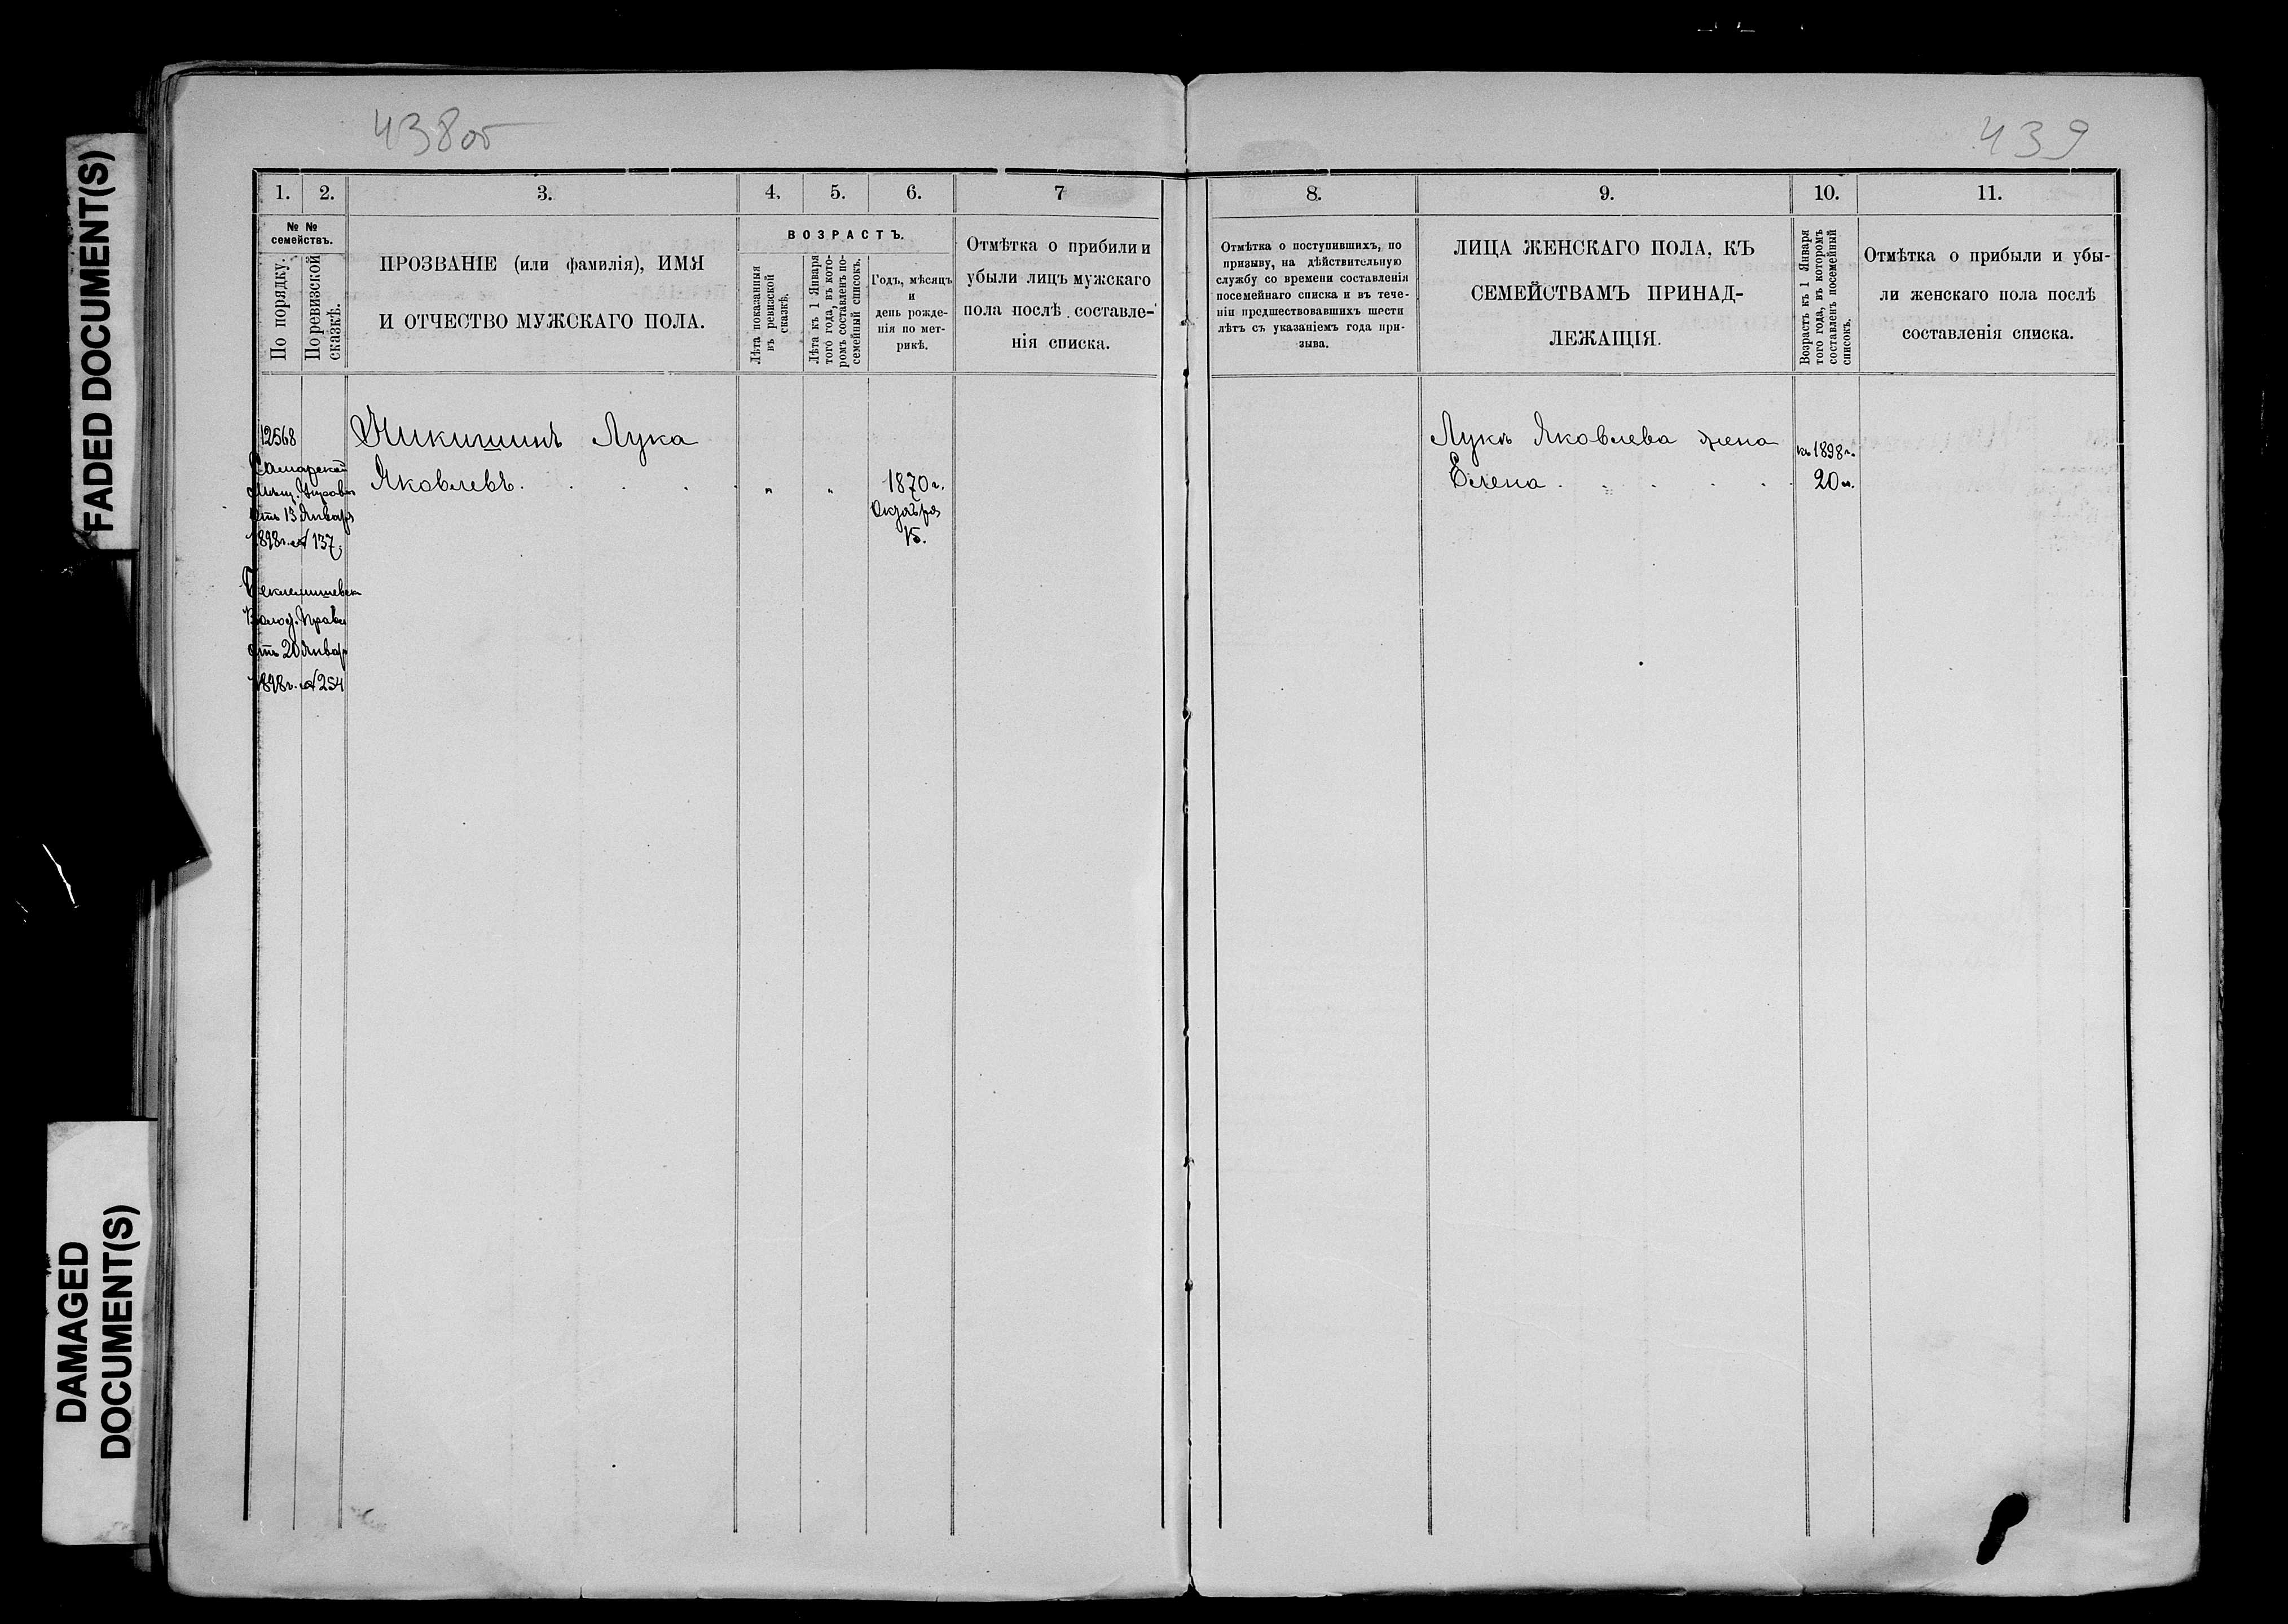 FADED DOCUMENT(S)
DAMAGED
DOCUMENT(S)
438об
1. 2. 3. 4. 5. 6. 7
№ №
семействъ.
По порядку.
По ревизской
сказкѣ.
ПРОЗВАНІЕ (или фамилія), ИМЯ
И ОТЧЕСТВО МУЖСКАГО ПОЛА.
ВОЗРАСТЪ.
Лѣта показанныя
въ ревизской
сказкѣ.
Лѣта къ 1 Января
того года, въ кото-
ромъ составленъ по-
семейный списокъ.
Годъ, мѣсяцъ
и
день рожде-
нія по мет-
рикѣ.
Отмѣтка о прибили и
убыли лицъ мужскаго
пола послѣ составле-
нія списка.
12568
Никишинъ Лука
Яковлевъ. . . . . " "
1870 г.
Октября
15.
Самарской
Мѣщ. Управы
отъ 13 Января
1898 г. № 137,
Беклемишевск
Волос. Правл
отъ 20 Январ
1898 г. № 254
439
8. 9. 10. 11.
Отмѣтка о поступившихъ, по
призыву, на дѣйствительную
службу со времени составленія
посемейнаго списка и въ тече-
ніи предшествовавшихъ шести
лѣтъ съ указаніемъ года при-
зыва.
ЛИЦА ЖЕНСКАГО ПОЛА, КЪ
СЕМЕЙСТВАМЪ ПРИНАД-
ЛЕЖАЩІЯ.
Возрастъ къ 1 Января
того года, въ которомъ
составленъ посемейный
списокъ.
Отмѣтка о прибыли и убы-
ли женскаго пола послѣ
составленія списка.
Луки Яковлева жена
Елена . . . . .
къ 1898 г.
20 л.